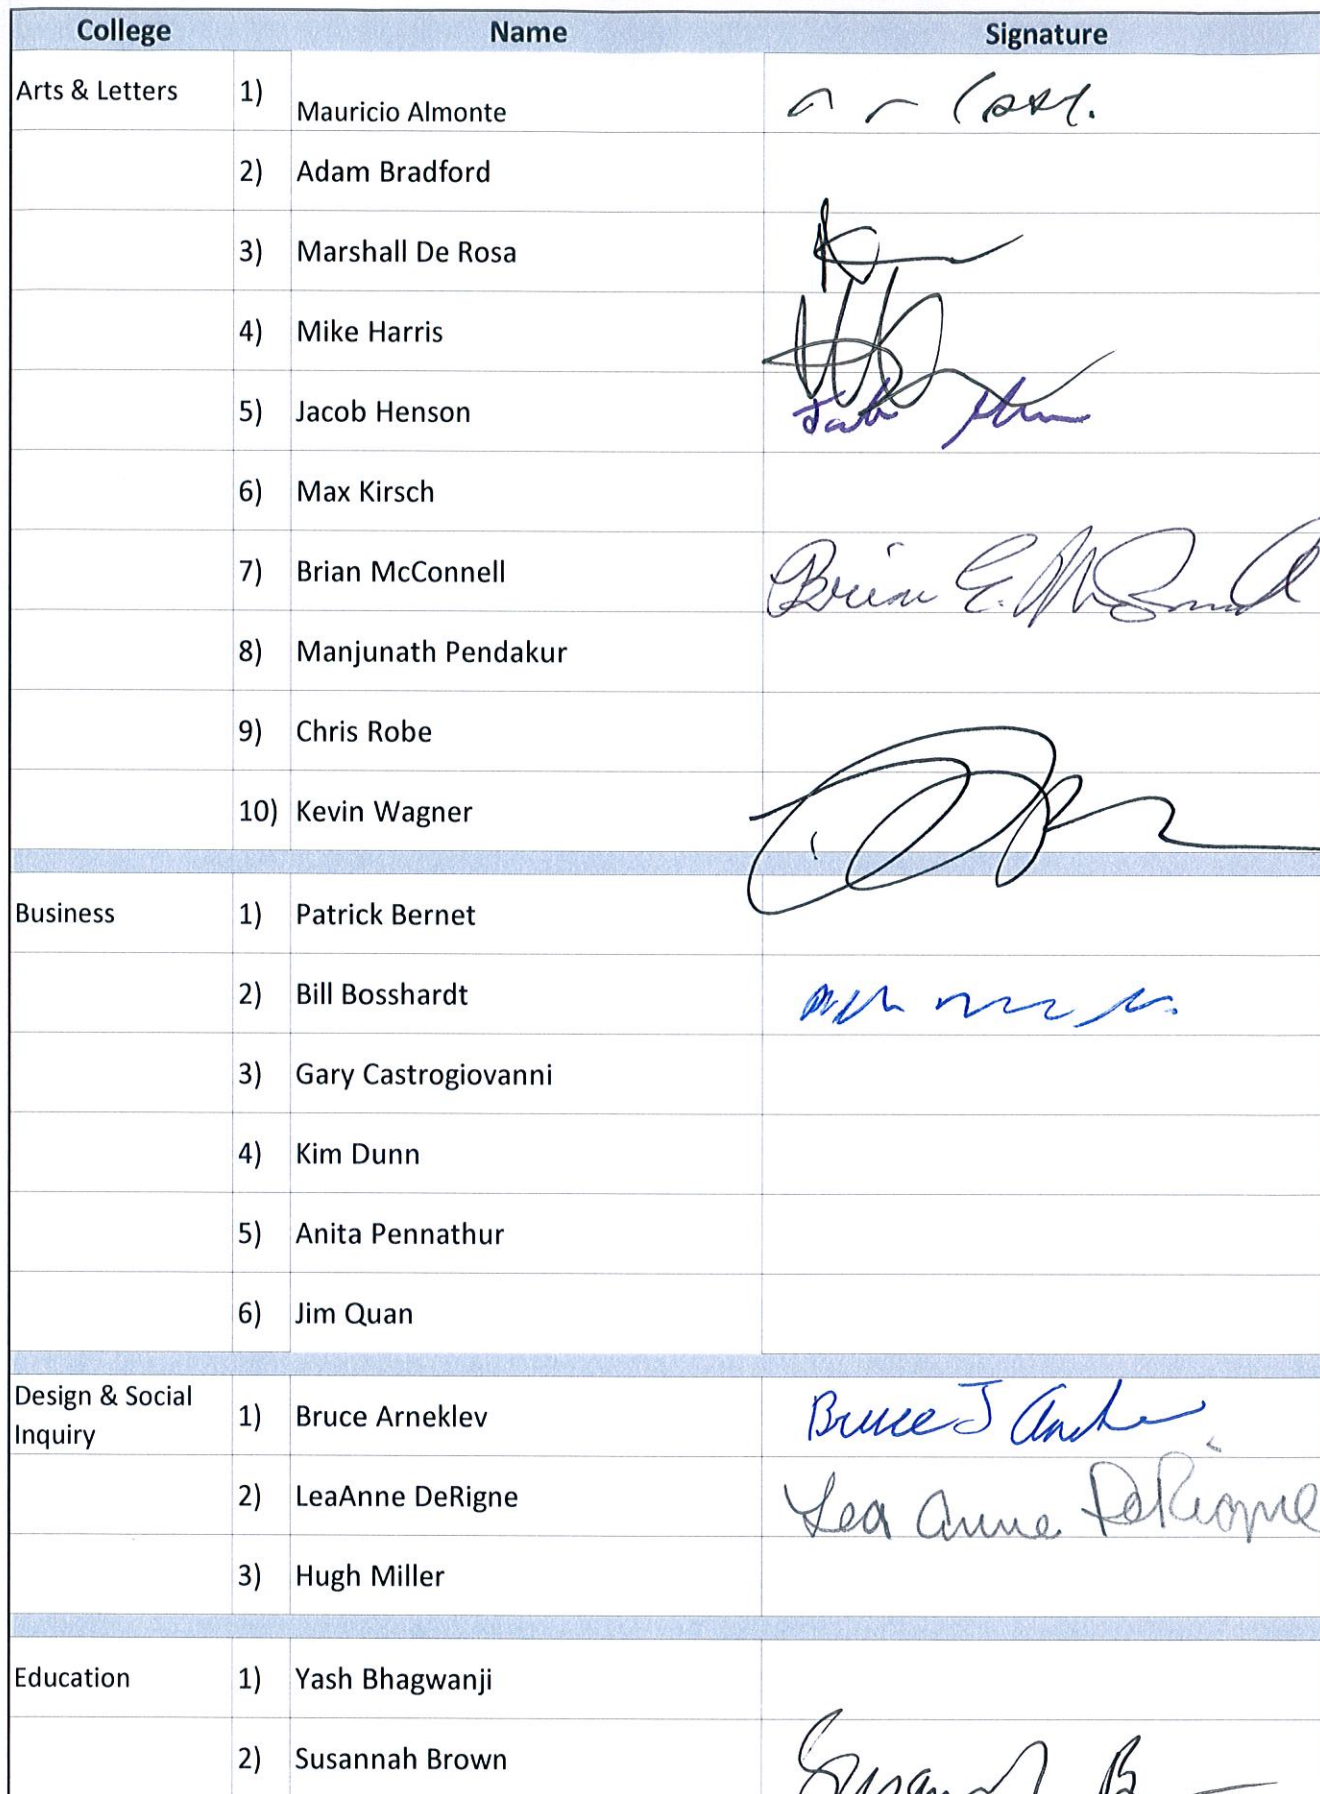 College Name Signature
Arts & Letters 1) Mauricio Almonte
2) Adam Bradford
3) Marshall De Rosa
4) Mike Harris
5) Jacob Henson
6) Max Kirsch
7) Brian McConnell Brian E. McConnell
8) Manjunath Pendakur
9) Chris Robe
10) Kevin Wagner
Business 1) Patrick Bernet
2) Bill Bosshardt
3) Gary Castrogiovanni
4) Kim Dunn
5) Anita Pennathur
6) Jim Quan
Design & Social
Inquiry 1) Bruce Arneklev Bruce J
2) LeaAnne DeRigne Lea Anne DeRigne
3) Hugh Miller
Education 1) Yash Bhagwanji
2) Susannah Brown